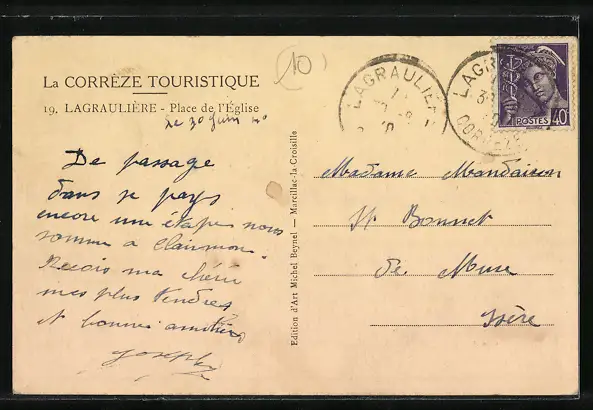 (10)
La CORRÈZE TOURISTIQUE
19. LAGRAULIÈRE - Place de l'Église
le 30 juin 40
De passage
dans se pays
encore une étape nous
somme a Clairmon.
Recois ma chérie
mes plus tendres
et bonnes amitiés
Joseph
Edition d'Art Michel Beynel — Marcillac-la-Croisille
LAGRAULIÈ
LAGR
CORRÈZE
POSTES 40
Madame Mandaison
St Bonnet
de Mure
Isère